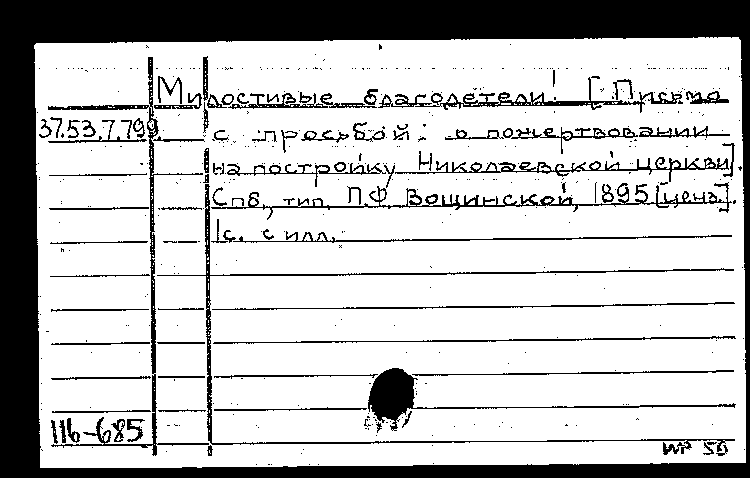 Милостивые благодетели! [Письмо
37.53.7.799. с просьбой о пожертвовании
на постройку Николаевской церкви].
Спб., тип. П.Ф. Вощинской, 1895 [ценз.].
1с. с илл.
116-685